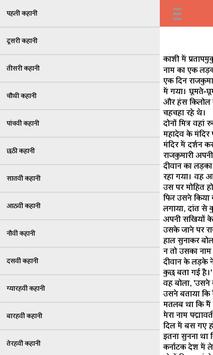 पहली कहानी
दूसरी कहानी
तीसरी कहानी
चौथी कहानी
पांचवी कहानी
छठी कहानी
सातवी कहानी
आठवी कहानी
नौवी कहानी
दसवी कहानी
ग्यारहवी कहानी
बारहवी कहानी
तेरहवी कहानी
काशी में प्रतापमु
नाम का एक लड़क
दिन राजकुमार
में गया। घूमते-घूम
और हंस किलोल
चहचहा रहे थे।
दोनों मित्र वहां रु
महादेव के मंदिर
मंदिर में दर्शन क
राजकुमारी अपनी
दीवान का लड़का
रहा गया। वह आ
उस पर मोहित हो
फिर उसने किया
लगाया, दांत से कु
अपनी सखियों के
उसके जाने पर रा
हाल सुनाकर बोल
न तो उसका नाम
दीवान के लड़के ने
कुछ बता गई है।'
वह बोला, 'उसने
उसने बताया कि
मतलब था कि मैं
मेरा नाम पद्मावर्त
दिल में बस गए ह
कर्नाटक देश में ले